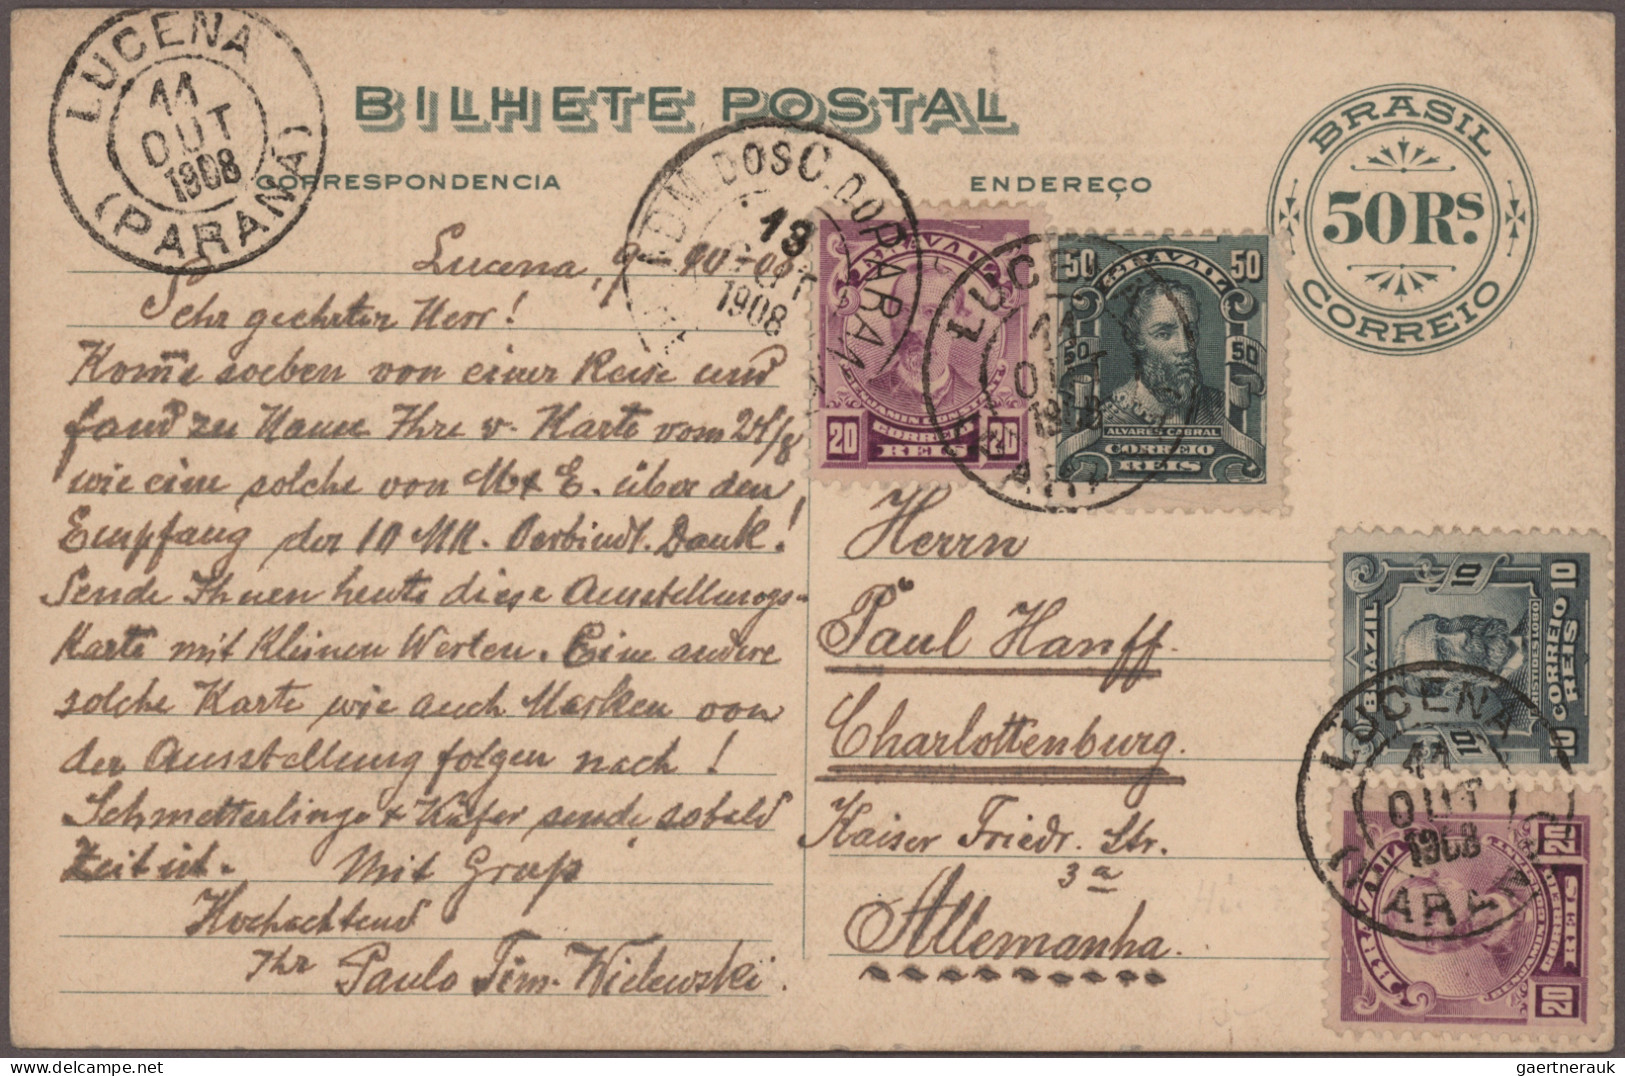 LUCENA
11
OUT
1908
(PARANÁ)
BILHETE POSTAL
CORRESPONDENCIA
ENDEREÇO
BRASIL
50 Rs.
CORREIO
ADM. DOS C. DO PARANÁ
13
OUT
1908
BRAZIL
BENJAMIN CONSTANT
20 CORREIO 20
REIS
50 BRAZIL 50
50 50
ALVARES CABRAL
CORREIO
REIS
LUCENA
11
OUT
1908
PARANÁ
Lucena, 9-10-08
Sehr geehrter Herr!
Kom̄e soeben von einer Reise und
fand zu Hause Ihre w. Karte vom 24/8
wie eine solche von M & E. über den
Empfang der 10 MK. Verbindl. Dank!
Sende Ihnen heute diese Ausstellungs-
Karte mit kleinen Werten. Eine andere
solche Karte wie auch Marken von
der Ausstellung folgen nach!
Schmetterlinge & Käfer sende sobald
Zeit ist. Mit Gruß
Hochachtend
Ihr Paulo
Herrn
Paul Hanff.
Charlottenburg.
Kaiser Friedr. Str.
3a
Allemanha.
10 BRAZIL 10
ARISTIDES LOBO
10 CORREIO 10
REIS
LUCENA
11
OUT
1908
PARANÁ
BRAZIL
BENJAMIN CONSTANT
20 CORREIO 20
REIS
gaertnerauk